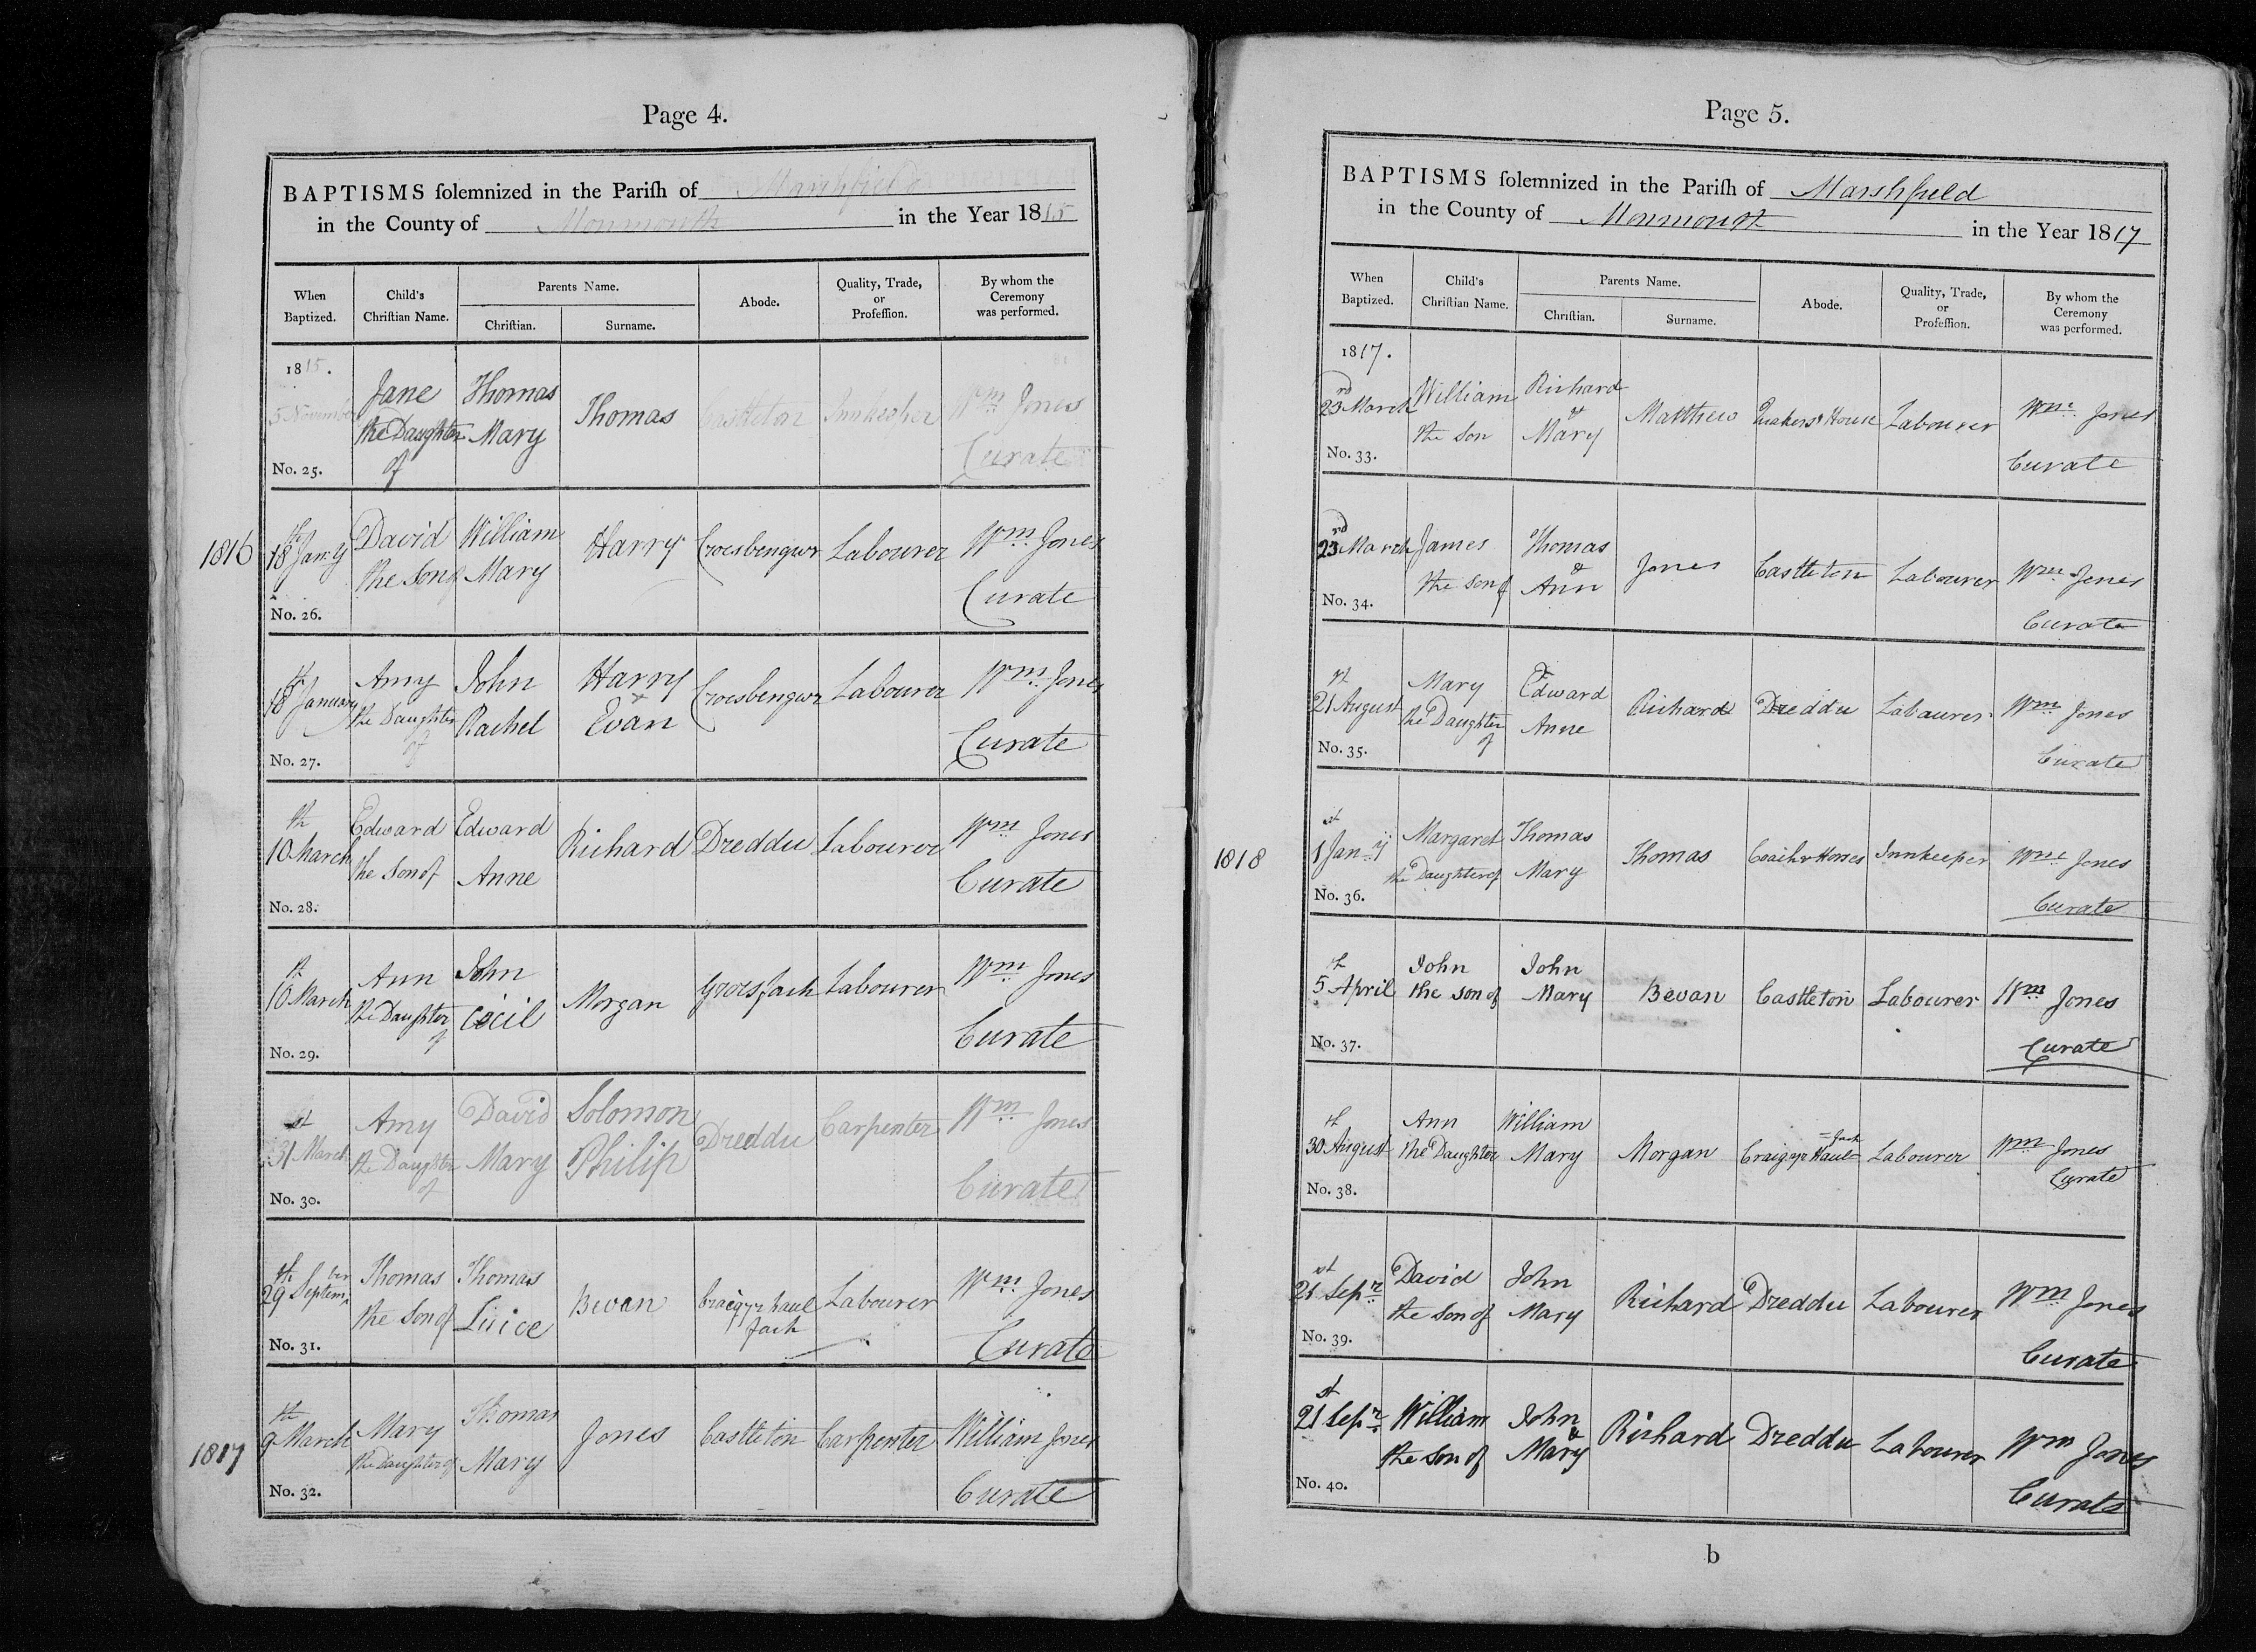 Page 4.
BAPTISMS ſolemnized in the Pariſh of Marshfield
in the County of Monmouth in the Year 1815
When Baptized.
Child's Chriſtian Name.
Parents Name.
Chriſtian.
Surname.
Abode.
Quality, Trade, or Profeſſion.
By whom the Ceremony was performed.
1815.
5 November Jane the Daughter of Thomas Mary Thomas Castleton Innkeeper Wm. Jones Curate
No. 25.
1816
18th Jan.y David the Son of William Mary Harry Croesbengwr Labourer Wm. Jones Curate
No. 26.
18th January Amy the Daughter of John Rachel Harry + Evan Croesbengwr Labourer Wm. Jones Curate
No. 27.
10th March Edward the Son of Edward Anne Richard Dreddu Labourer Wm. Jones Curate
No. 28.
10th March Ann the Daughter of John Cecil Morgan Labourer Wm. Jones Curate
No. 29.
31st March Amy the Daughter of David Mary Solomon Philip Dreddu Carpenter Wm. Jones Curate
No. 30.
29th Septem.ber Thomas the Son of Thomas Bevan Craigyr haul fach Labourer Wm. Jones Curate
No. 31.
1817
9th March Mary the Daughter of Thomas Mary Jones Castleton Carpenter William Jones Curate
No. 32.
Page 5.
BAPTISMS ſolemnized in the Pariſh of Marshfield
in the County of Monmouth in the Year 1817
When Baptized.
Child's Chriſtian Name.
Parents Name.
Chriſtian.
Surname.
Abode.
Quality, Trade, or Profeſſion.
By whom the Ceremony was performed.
1817.
23rd March William the Son Richard & Mary Matthew Quakers House Labourer Wm. Jones Curate
No. 33.
23rd March James the Son of Thomas & Ann Jones Castleton Labourer Wm. Jones Curate
No. 34.
21st August Mary the Daughter of Edward Anne Richard Dreddu Labourer Wm. Jones Curate
No. 35.
1818
1st Jan.y Margaret the Daughter of Thomas Mary Thomas Coach & Horses Innkeeper Wm. Jones Curate
No. 36.
5th April John the Son of John Mary Bevan Castleton Labourer Wm. Jones Curate
No. 37.
30th August Ann the Daughter William Mary Morgan Craig.yr Haul=fach Labourer Wm. Jones Curate
No. 38.
21st Sepr. David the Son of John Mary Richard Dreddu Labourer Wm. Jones Curate
No. 39.
21st Sepr. William the Son of John & Mary Richard Dreddu Labourer Wm Jones Curate
No. 40.
b